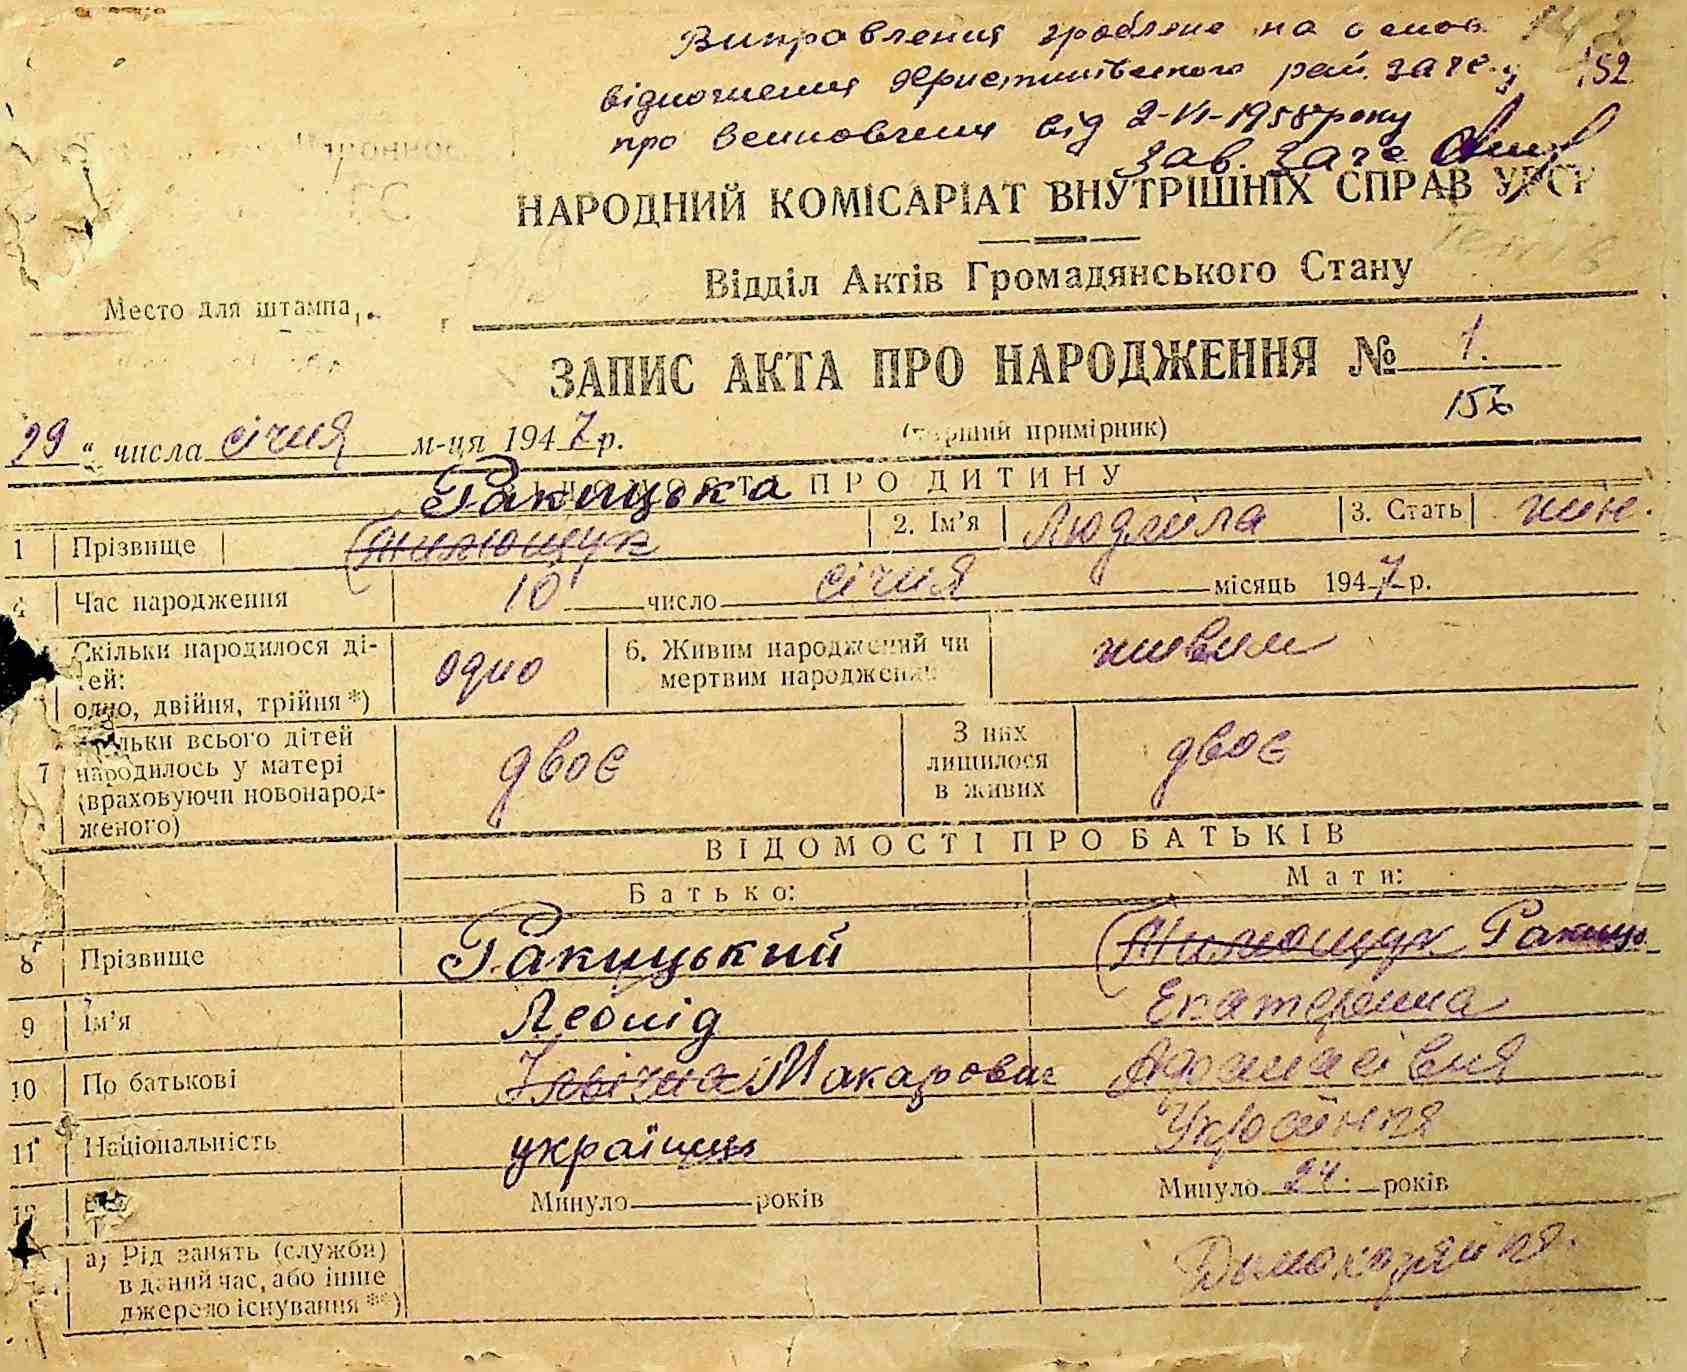 Виправлення зроблене на основ
відношення Христинівського рай. загсу
152
про всиновлення від 2-VI-1958 року
Зав. загс
НАРОДНИЙ КОМІСАРІАТ ВНУТРІШНІХ СПРАВ УРСР
Відділ Актів Громадянського Стану
Место для штампа
ЗАПИС АКТА ПРО НАРОДЖЕННЯ № 1.
29 " числа січня м-ця 1947 р. (перший примірник)
ВІДОМОСТІ ПРО ДИТИНУ
Ракицька
1 Прізвище 2. Ім'я Людміла 3. Стать жін.
Час народження 10 число січня місяць 1947 р.
Скільки народилося ді-
тей:
одно, двійня, трійня *)
одно
6. Живим народжений чи
мертвим народжений
живим
7 Скільки всього дітей
народилось у матері
(враховуючи новонарод-
женого)
двоє
З них
лишилося
в живих
двоє
ВІДОМОСТІ ПРО БАТЬКІВ
Батько: Мати:
8 Прізвище Ракицький
9 Ім'я Леонід Екатерина
10 По батькові Макарович Афанасівня
11 Національність українець Українка
12 Минуло роківМинуло 24. років
а) Рід занять (служби)
в даний час, або інше
джерело існування **)
Домохазяйка.